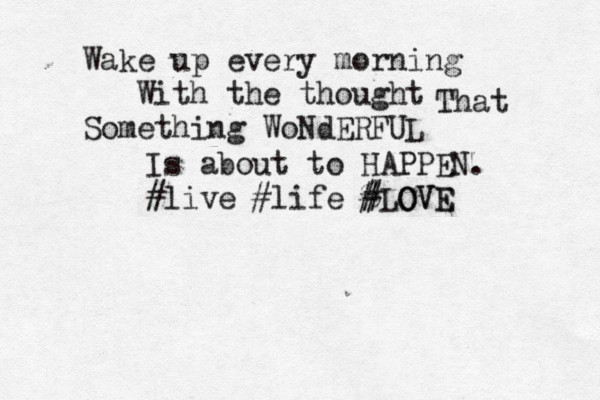 Wake up every morning
With the thought That
Something WoNdERFUL
Is about to HAPPEN.
#live #life #LOVE